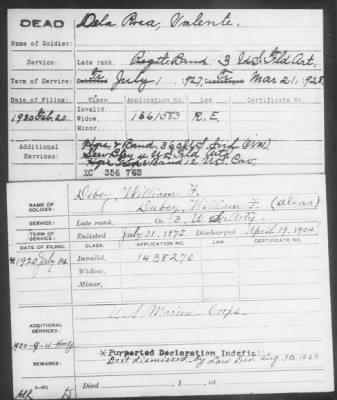 DEAD Dela Rosa, Valente.
Name of Soldier:
Service: Late rank, Regt Band, 3 U.S. Fld Art.
Term of Service: Fr. July 1, 1927, To Mar 21, 1928.
Date of Filing: Class Application No. Law Certificate No.
1930 Feb. 20. Invalid, 1661583 R. E.
Widow,
Minor,
Additional Services:
XC 356 763
NAME OF SOLDIER: Dobey, William F.
Dubey, William F. (alias)
SERVICE: Late rank, Co. 3, U.S. Arty.
TERM OF SERVICE: Enlisted July 31, 1875 Discharged April 19, 1904
DATE OF FILING: CLASS. APPLICATION NO. LAW CERTIFICATE NO.
*1920 July 14 Invalid, 1438270
Widow,
Minor,
U. S. Marine Corps.
ADDITIONAL SERVICES:
1920-9-4
REMARKS: * Purported Declaration Indefinite
Decl dismissed by Law Div. Aug. 30 1920
Died , 1 , at